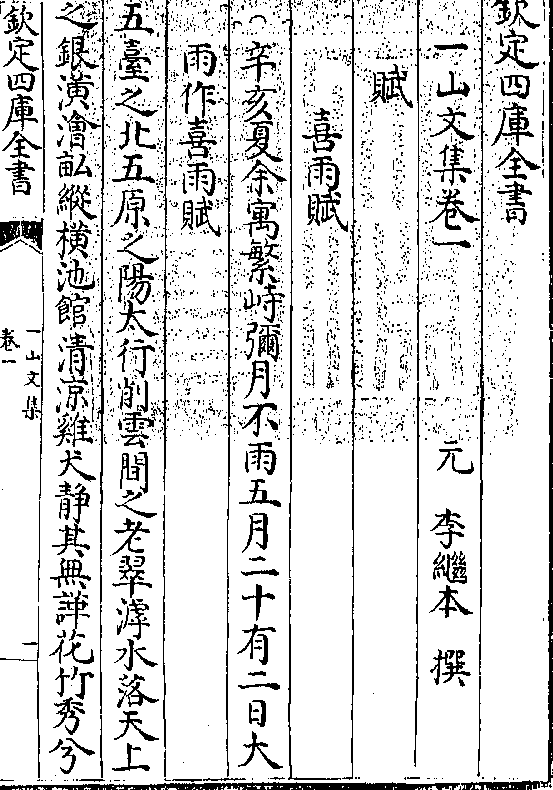 欽定四庫全書
一山文集卷一
元 李繼本 撰
賦
喜雨賦
辛亥夏余寓繁峙彌月不雨五月二十有二日大
雨作喜雨賦
五臺之北五原之陽太行削雲間之老翠滹水落天上
之銀潢澮畆縱橫池館清凉雞犬靜其無譁花竹秀兮
欽定四庫全書
一山文集
卷一
一